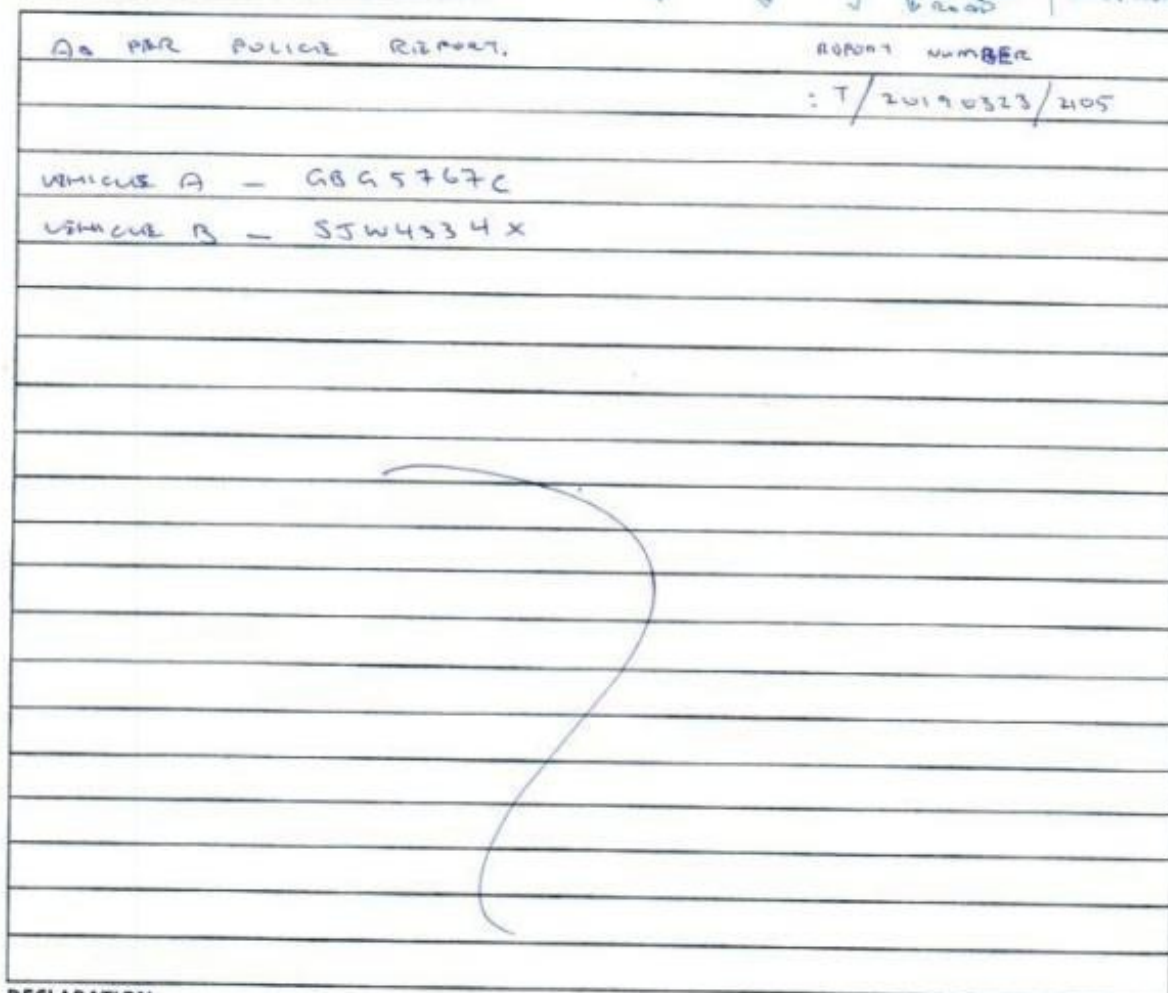 As PER POLICE REPORT. REPORT NUMBER
: T/20190323/2105
VEHICLE A - GBG5767C
VEHICLE B - SJW4334X
DECLARATION